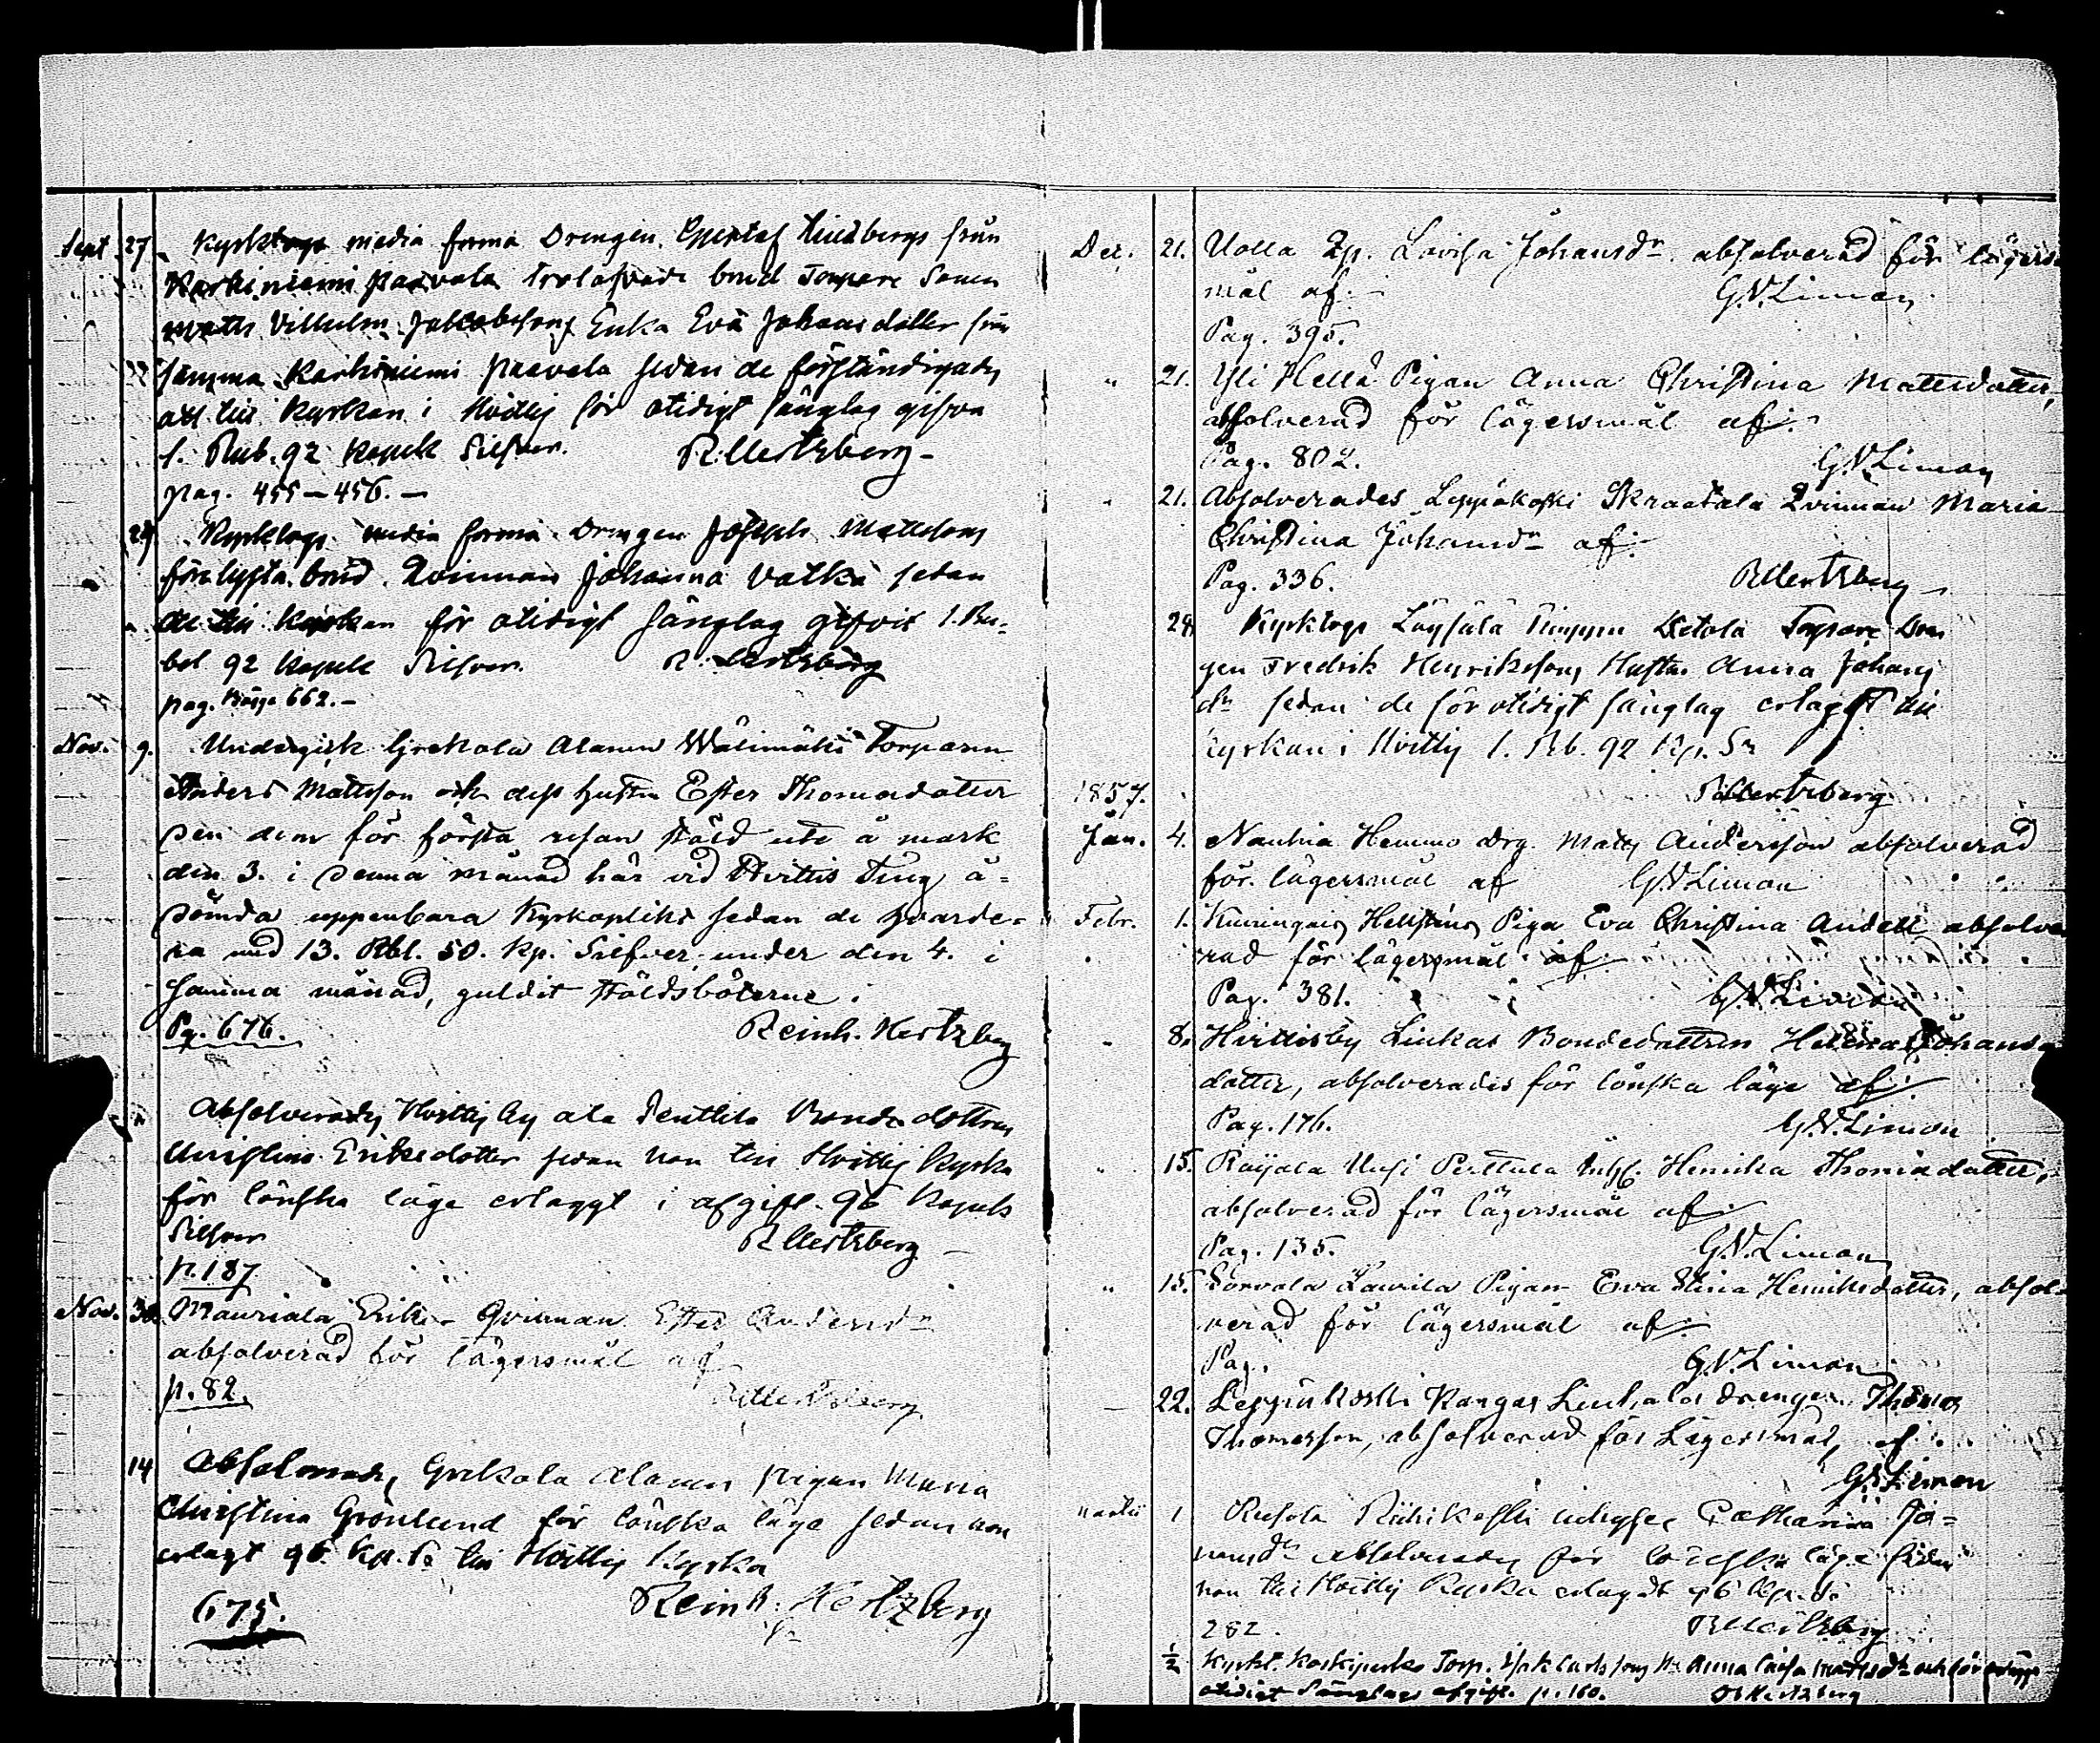 Sept 27. Kyrktogs media forma Drengen Gustaf Lindbergs från
Karhiniemi Paavola trolofvade brud Torpare Sonen
Matts Vilhelm Jakobsons Enka Eva Johansdotter från
samma Karhiniemi Paavola sedan de förständigades
att till Kyrkan i Hvittis för otidigt sänglag gifva
1. Rub. 92 Kopek Silfver. RHertzberg
pag. 455-456.
29 Kyrktogs media forma Drengen Josephs Mattssons
förelysta brud Qvinnan Johanna Valkä sedan
de till Kyrkan för otidigt sänglag gifvit 1. Ru-
bel 92 Kopek Silfver. R. Hertzberg
pag. 662.
Nov. 9. Undergick Grekola Alanen Wälimäki Torparen
Anders Mattsson och dess hustru Ester Thomasdotter
den dem för första resan stöld ute å mark
den 3. i denna månad här vid Hvittis Ting å-
dömda uppenbara Kyrkoplikt sedan de hvarde-
ra med 13. Rbl. 50. Kp. Silfver under den 4. i
samma månad, guldit stöldsböterne.
Pg. 676. Reinh. Hertzberg
Absolverades Hvittis by Ala Penttila Bonde dottren
Christina Eriksdotter sedan hon till Hvittis Kyrka
för lönska läge erlaggt i afgift 96 Kopek
Silfver RHertzberg
p. 187
Nov. 30. Mauriala Erike Qvinnan Ester Andersdr
absolverad för lägersmål af
p. 82. RHertzberg
14 Absolverades Grekola Alanen pigan Maria
Christina Grönlund för lönska läge sedan hon
erlagt 96 Kp. Sr till Hvittis Kyrka
675. Reinh. Hertzberg
Dec. 21. Uolla Qp. Lovisa Johansdr absolverad för lägers-
mål af: G.V. Liman
Pag. 395.
" 21. Yli Hellä Pigan Anna Christina Mattsdotter,
absolverad för lägersmål af:
Pag. 802. G.V. Liman
21. Absolverades Leppäkoski Skraatala Qvinnan Maria
Christina Johansdr af:
Pag. 336. RHertzberg
28 Kyrktogs Torpare Dren
gen Fredrik Henrikssons Hustru Anna Johans
dr sedan de för otidigt sänglag erlaggt till
Kyrkan i Hvittis 1. Rb. 92 Kp. Sr
1857. RHertzberg
Jan. 4. Nauhia Hemmo Drg. Matts Andersson absolverad
för lägersmål af G.V. Liman
Febr. 1. Kiuringais Piga Eva Christina Andell absolve
rad för lägersmål af:
Pag. 381. G.V. Liman
" 8. Hvittisby Linkas Bondedottren Helena Johans
dotter, absolverades för lönska läge af:
Pag. 176. G.V. Liman
" 15. Raijala Uusi Perttula Inhs. Henrika Thomasdotter,
absolverad för lägersmål af:
Pag. 135. G.V. Liman
" 15. Sorvola Laurila Pigan Eva Stina Henriksdotter, absol-
verad för lägersmål af:
Pag. G.V. Liman
22. Leppäkoski Kangas Liuhala Drengen Thomas
Thomasson, absolverad för Lägersmål, af
G.V. Liman
Martii 1 Riihikoski inhyses Catharina Jo-
hansdr absolverades för lönska läge sedan
hon till Hvittis Kyrka erlagdt 96 Kp. Sr
282. RHertzberg
1/2 Kyrkt. Torp. Isak Carlssons H. Anna Caisa Mattsdr och för
otidigt Sänglags afgift. p. 160. RHertzberg